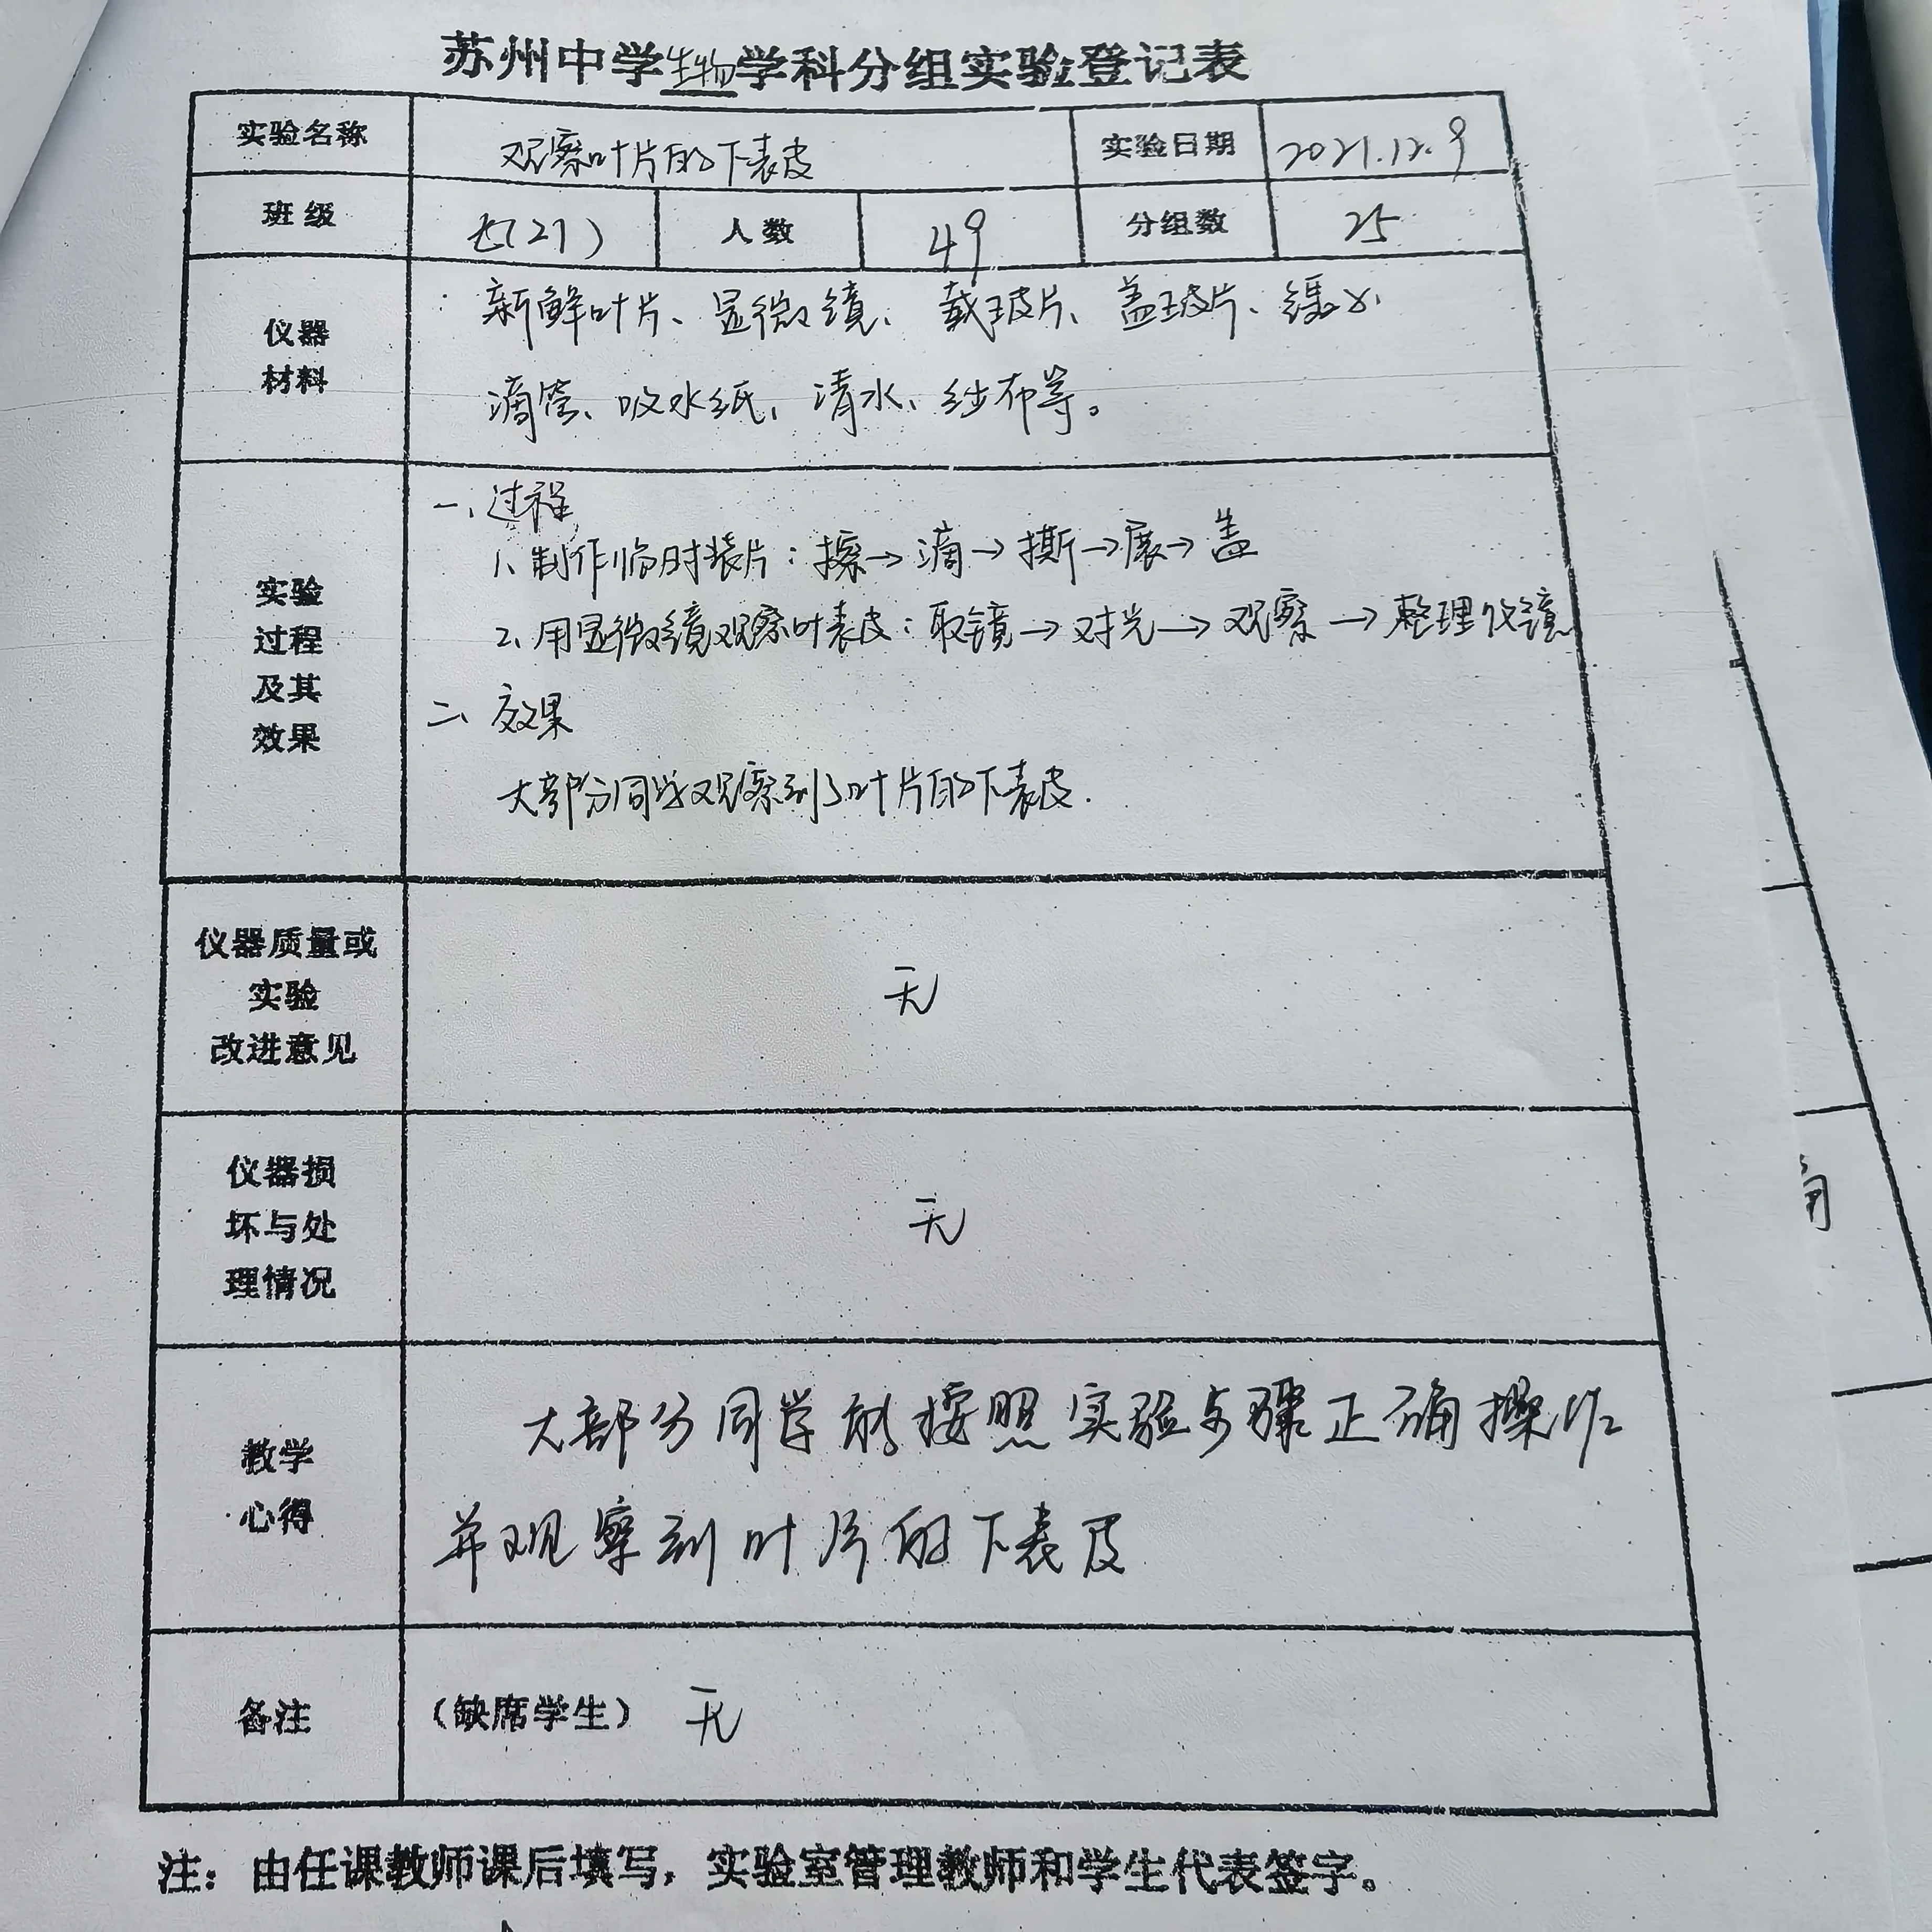 苏州中学生物学科分组实验登记表
实验名称 观察叶片的下表皮 实验日期 2021.12.9
班级 七(21) 人数 49 分组数 25
仪器
材料
新鲜叶片、显微镜、载玻片、盖玻片、镊子、
滴管、吸水纸、清水、纱布等。
实验
过程
及其
效果
一、过程
1、制作临时装片：擦→滴→撕→展→盖
2、用显微镜观察叶表皮：取镜→对光→观察→整理仪镜
二、效果
大部分同学观察到了叶片的下表皮.
仪器质量或
实验
改进意见
无
仪器损
坏与处
理情况
无
教学
心得
大部分同学能按照实验步骤正确操作
并观察到叶片的下表皮
备注 (缺席学生) 无
注：由任课教师课后填写，实验室管理教师和学生代表签字。